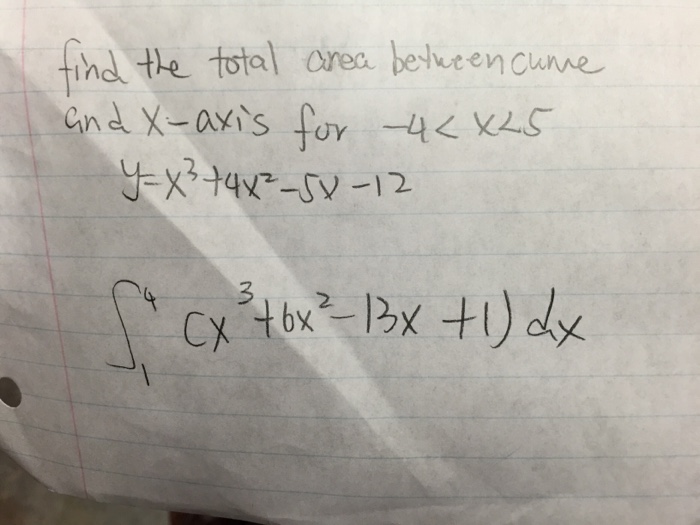 find the total area between curve
and x-axis for -4 < x < 5
y=x³+4x²-5x-12
∫₁⁴ (x³+6x²-13x+1) dx